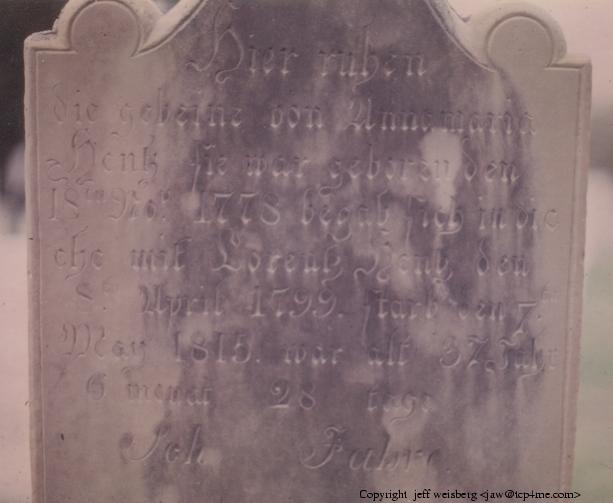 Hier ruhen
die gebeine von Annamaria
Hentz sie war geboren den
18ten Nov. 1778 begab sich in die
ehe mit Lorentz Hentz den
8ten April 1799. starb den 7ten
May 1815. war alt 37 Jahr
6 monat 28 tage
Fahre
Copyright jeff weisberg <jaw@tcp4me.com>